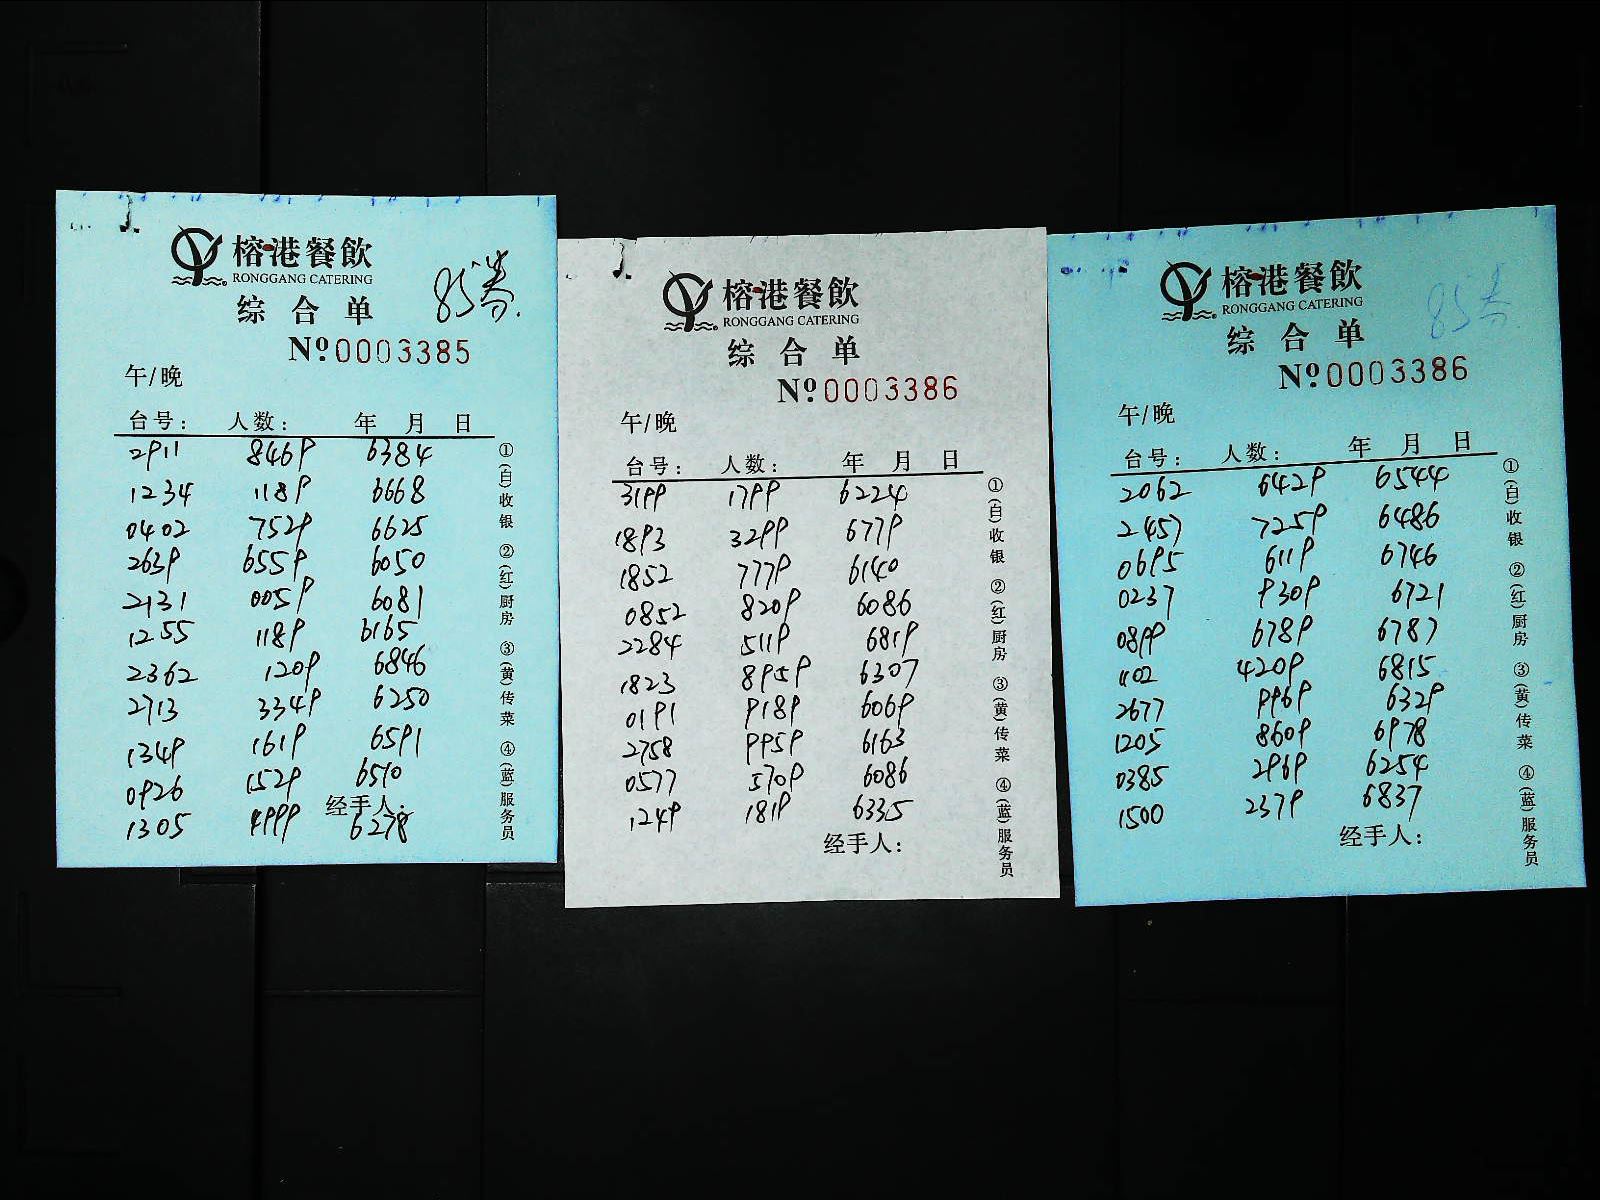 榕港餐飲
RONGGANG CATERING
综合单
85券.
№0003385
午/晚
台号： 人数： 年 月 日
2911 8469 6384
1234 1189 6668
0402 7529 6625
2639 6559 6050
2131 0059 6081
1255 1189 6165
2362 1209 6846
2713 3349 6250
1349 1619 6591
0926 1529 6510
经手人：
1305 4999 6278
①(白)收银 ②(红)厨房 ③(黄)传菜 ④(蓝)服务员
榕港餐飲
RONGGANG CATERING
综合单
№0003386
午/晚
台号： 人数： 年 月 日
3199 1799 6224
1893 3299 6779
1852 7779 6140
0852 8209 6086
2284 5119 6819
1823 8959 6307
0191 9189 6069
2758 9959 6163
0577 5709 6086
1249 1819 6335
经手人：
①(白)收银 ②(红)厨房 ③(黄)传菜 ④(蓝)服务员
榕港餐飲
RONGGANG CATERING
综合单
85券
№0003386
午/晚
台号： 人数： 年 月 日
2062 6429 6544
2457 7259 6486
0695 6119 6746
0237 9309 6721
0899 6789 6787
1102 4209 6815
2677 9969 6329
1205 8609 6978
0385 2969 6254
1500 2379 6837
经手人：
①(白)收银 ②(红)厨房 ③(黄)传菜 ④(蓝)服务员